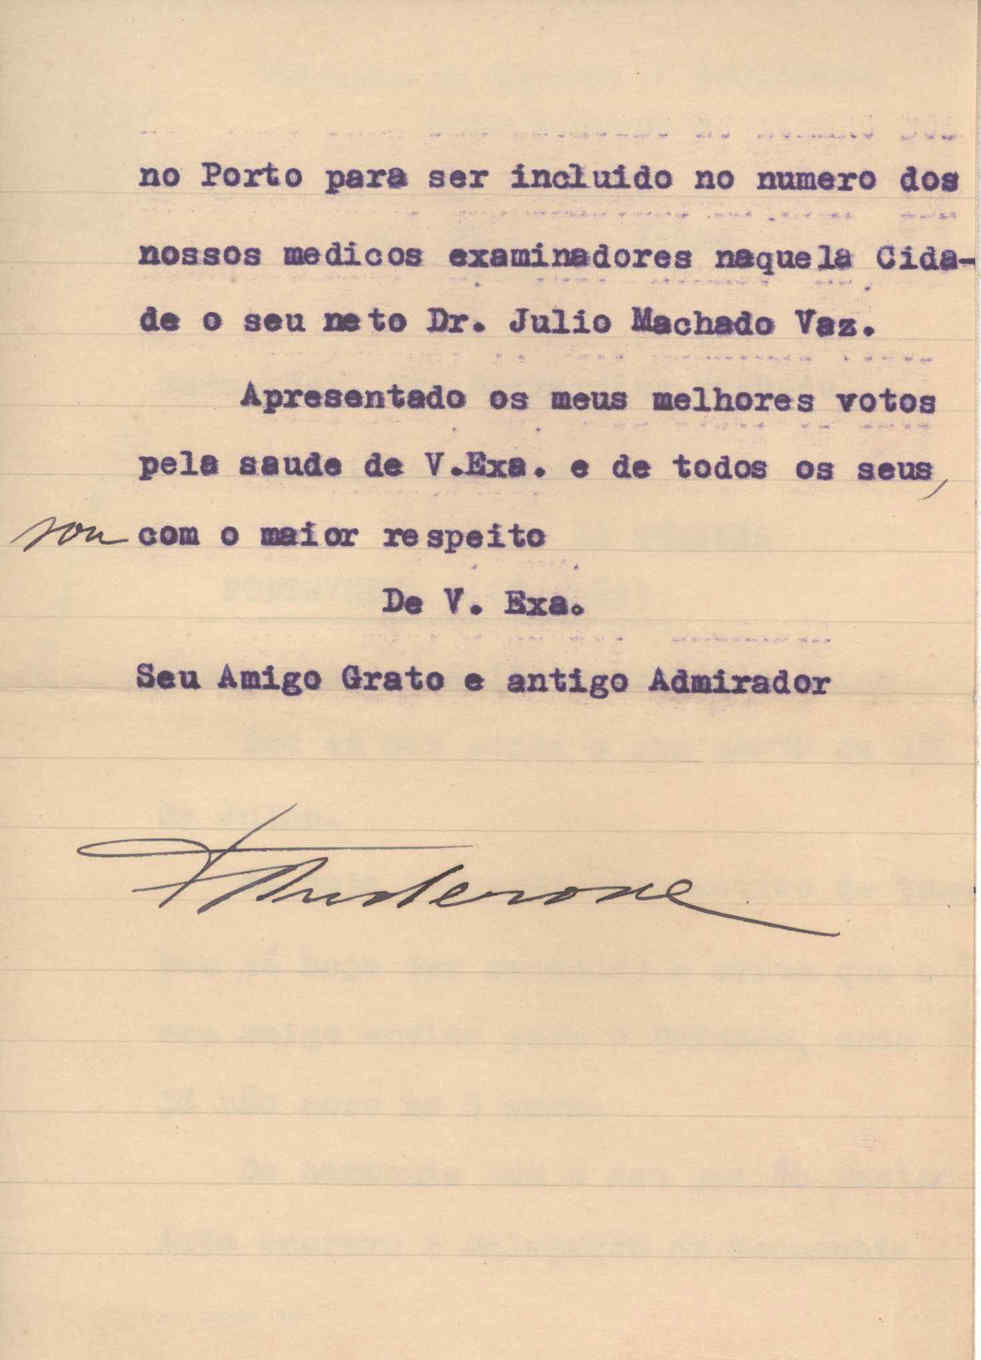 no Porto para ser incluido no numero dos
nossos medicos examinadores naquela Cida-
de o seu neto Dr. Julio Machado Vaz.
Apresentado os meus melhores votos
pela saude de V.Exa. e de todos os seus,
sou com o maior respeito
De V. Exa.
Seu Amigo Grato e antigo Admirador